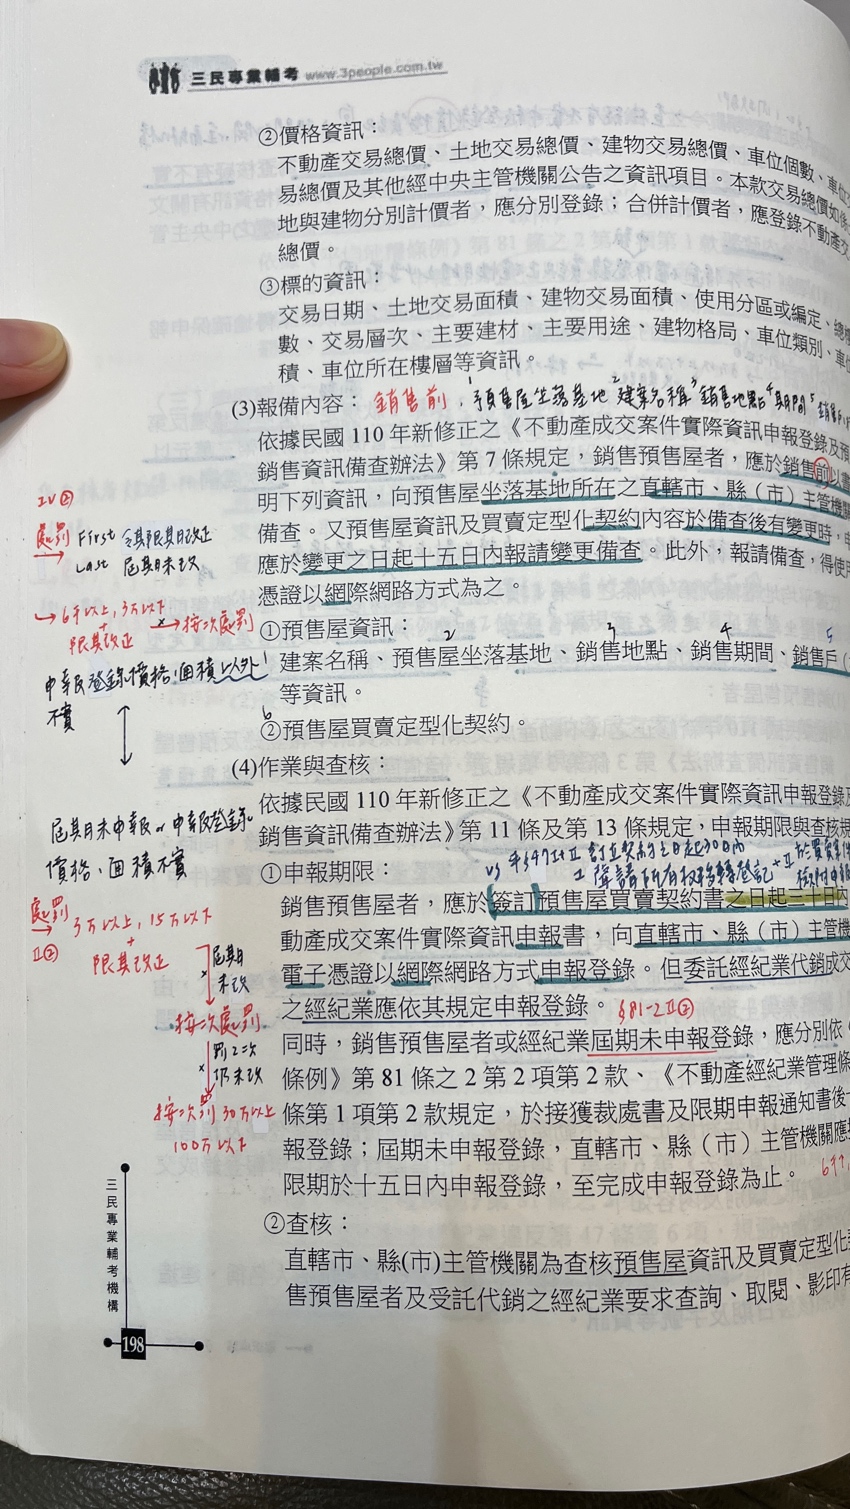 三民專業輔考 www.3people.com.tw
②價格資訊：
不動產交易總價、土地交易總價、建物交易總價、車位個數、車位交
易總價及其他經中央主管機關公告之資訊項目。本款交易總價如係土
地與建物分別計價者，應分別登錄；合併計價者，應登錄不動產交
總價。
③標的資訊：
交易日期、土地交易面積、建物交易面積、使用分區或編定、總樓
數、交易層次、主要建材、主要用途、建物格局、車位類別、車位
積、車位所在樓層等資訊。
(3)報備內容： 銷售前，1預售屋坐落基地 2建案名稱 3銷售地點 4期間 5銷售戶
依據民國 110 年新修正之《不動產成交案件實際資訊申報登錄及預
銷售資訊備查辦法》第 7 條規定，銷售預售屋者，應於銷售前以書
明下列資訊，向預售屋坐落基地所在之直轄市、縣（市）主管機關
備查。又預售屋資訊及買賣定型化契約內容於備查後有變更時，申
應於變更之日起十五日內報請變更備查。此外，報請備查，得使用
憑證以網際網路方式為之。
①預售屋資訊：
1 2 3 4 5
建案名稱、預售屋坐落基地、銷售地點、銷售期間、銷售戶（
等資訊。
6
②預售屋買賣定型化契約。
(4)作業與查核：
依據民國 110 年新修正之《不動產成交案件實際資訊申報登錄及
銷售資訊備查辦法》第 11 條及第 13 條規定，申報期限與查核規
vs 平§47 訂立契約之日起30日內
①申報期限：
申請所有權移轉登記
銷售預售屋者，應於簽訂預售屋買賣契約書之日起三十日內
動產成交案件實際資訊申報書，向直轄市、縣（市）主管機
電子憑證以網際網路方式申報登錄。但委託經紀業代銷成交
之經紀業應依其規定申報登錄。 §81-2II②
同時，銷售預售屋者或經紀業屆期未申報登錄，應分別依《
條例》第 81 條之 2 第 2 項第 2 款、《不動產經紀業管理條
條第 1 項第 2 款規定，於接獲裁處書及限期申報通知書後十
報登錄；屆期未申報登錄，直轄市、縣（市）主管機關應
限期於十五日內申報登錄，至完成申報登錄為止。
②查核：
直轄市、縣(市)主管機關為查核預售屋資訊及買賣定型化
售預售屋者及受託代銷之經紀業要求查詢、取閱、影印有
IV②
處罰 First 令其限期改正
Last 屆期未改
6千以上，3萬以下
+
限期改正 → 按次處罰
申報登錄價格、面積以外
不實
屆期未申報 or 申報登錄
價格、面積不實
處罰 3萬以上，15萬以下
II② +
限期改正
屆期
未改
按次處罰
罰2次
仍未改
按次罰 30萬以上
100萬以下
三民專業輔考機構
198